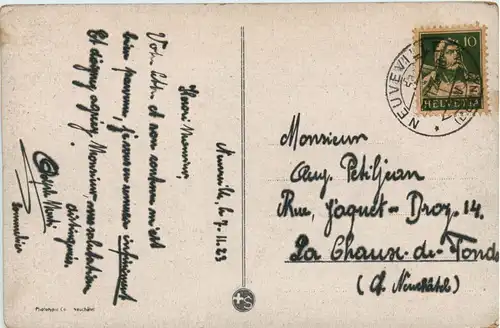 Neuveville, le 7. 11. 23
Henri Monsieur,
Votre lettre et son contenu m'est
bien parvenu, je vous en remercie infiniment
Et daignez agréer Monsieur mes salutations
distinguées.
Phototypie Co. Neuchâtel
NEUVEVILLE
10
HELVETIA
Monsieur
Aug. Petitjean
Rue, Jaquet-Droz. 14.
La Chaux-de-Fonds
(Ct. Neuchâtel)